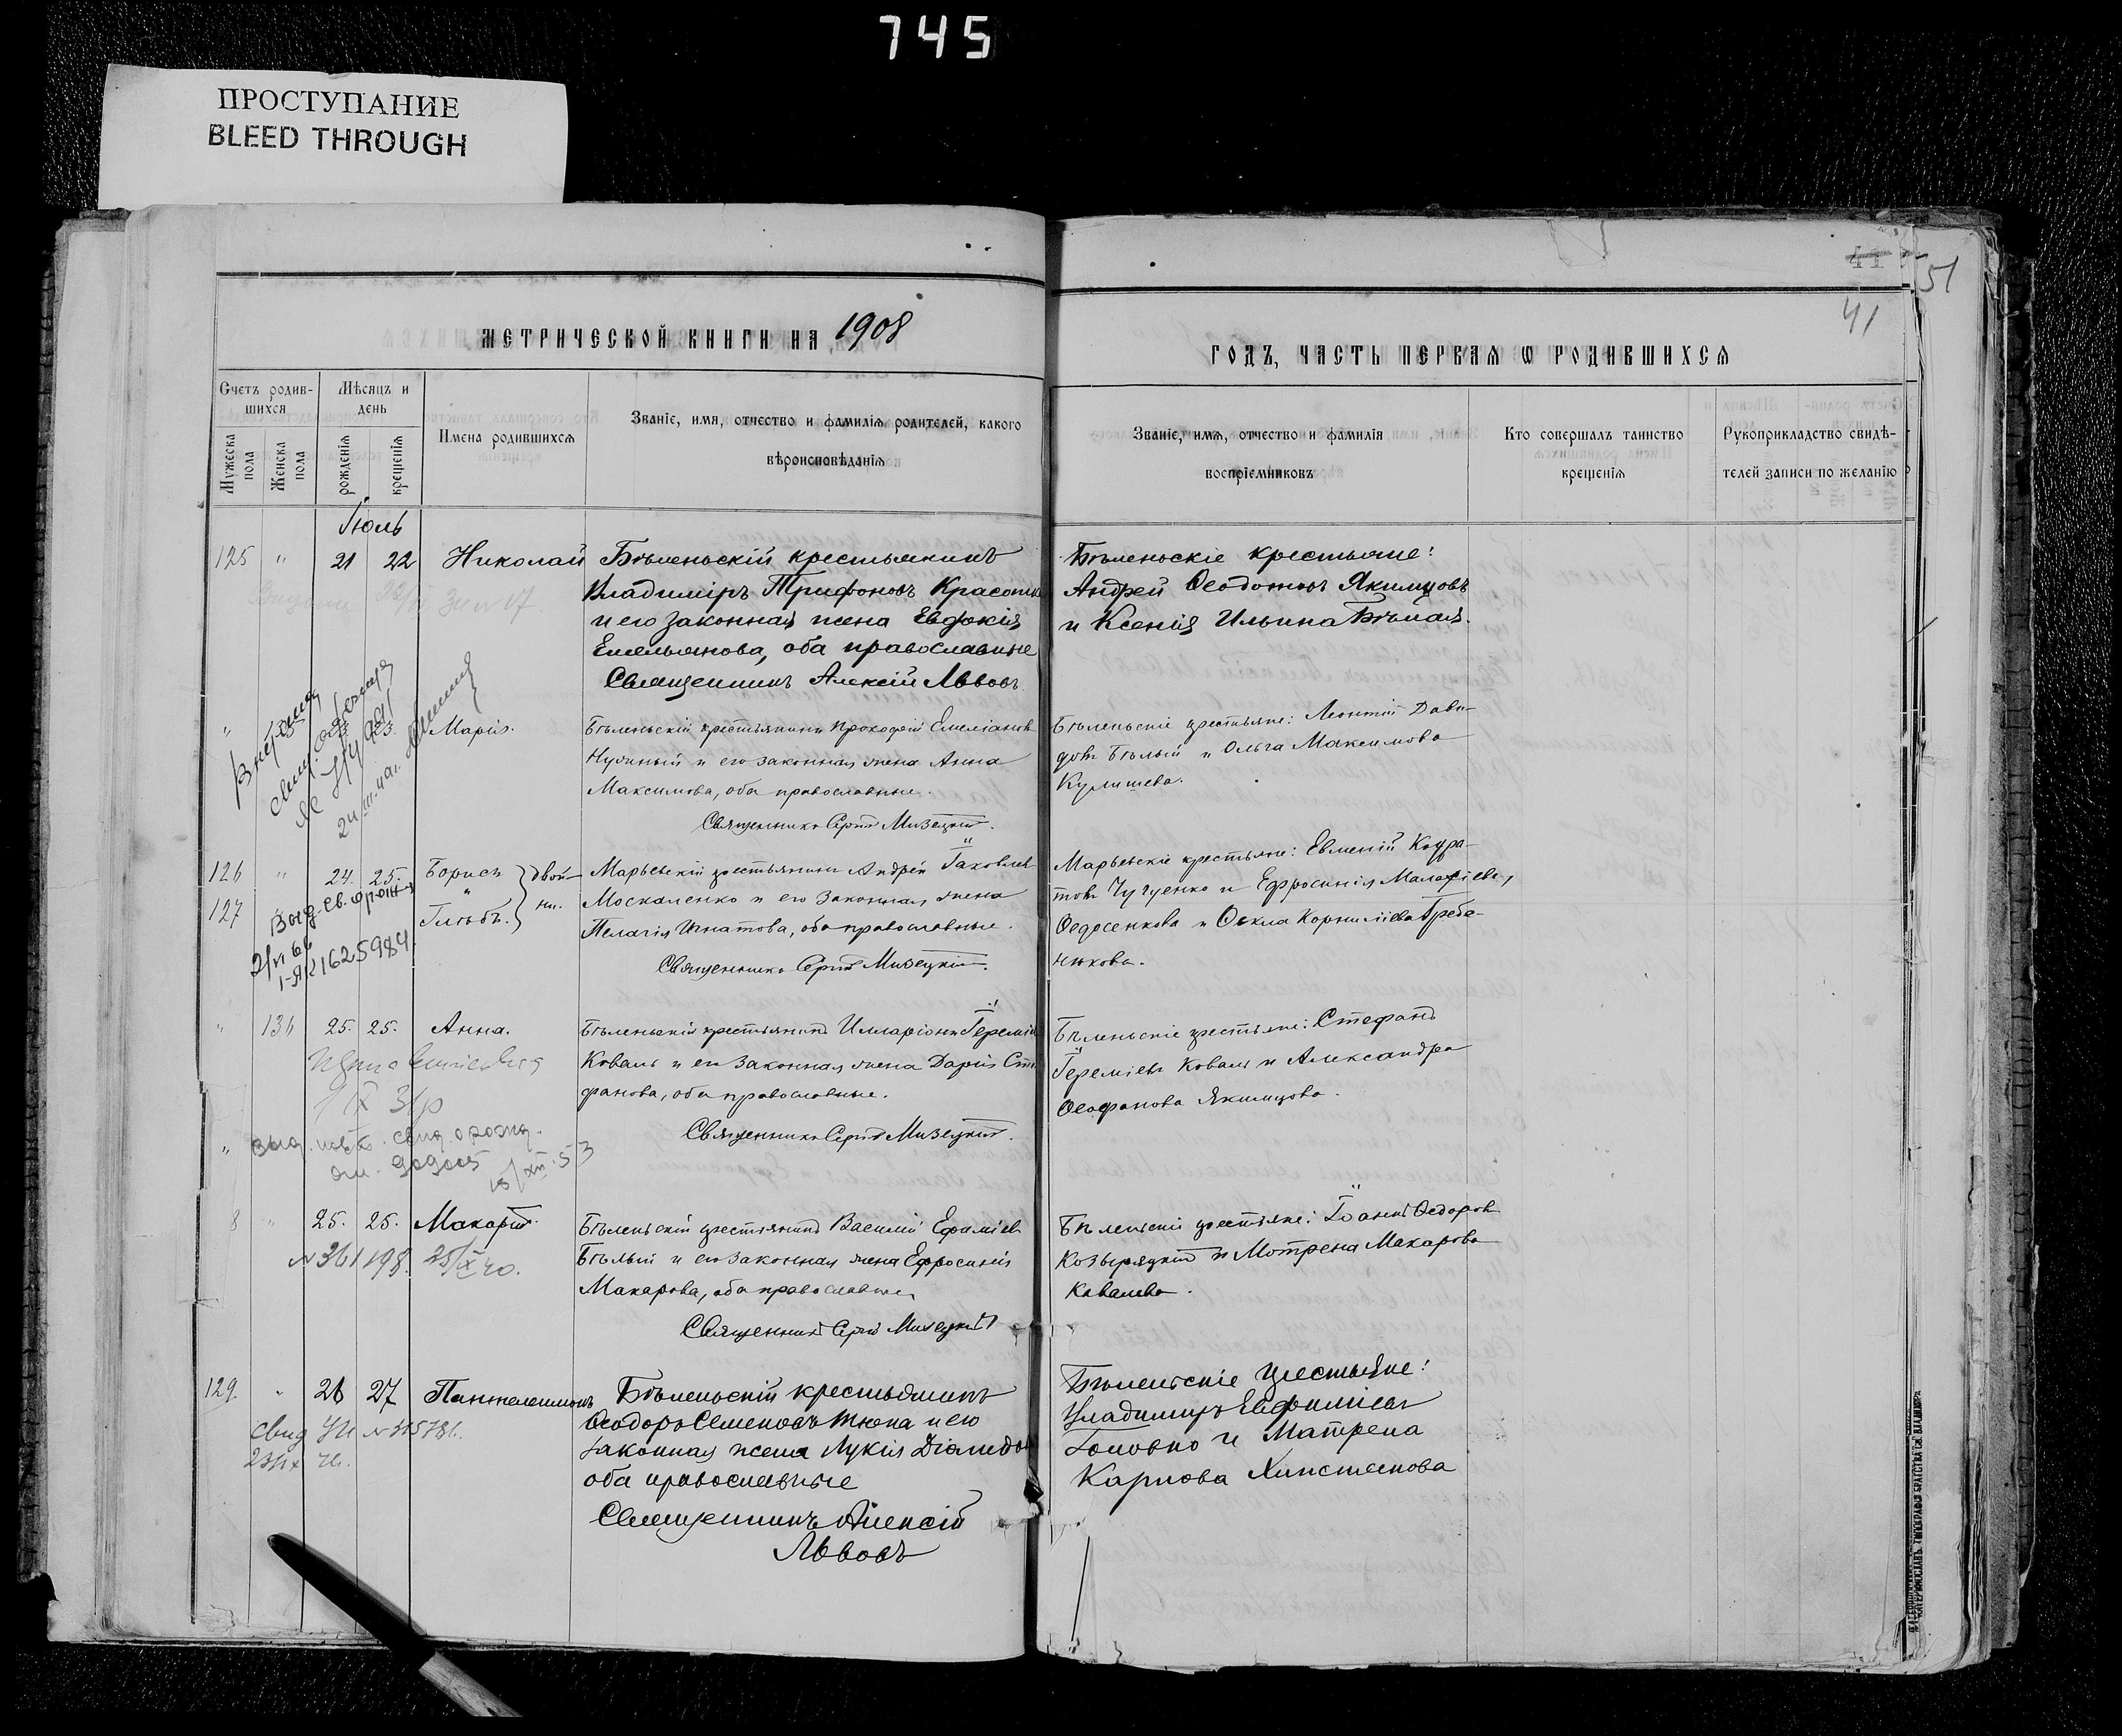 745
ПРОСТУПАНИЕ
BLEED THROUGH
51
41
41
МЕТРИЧЕСКОЙ КНИГИ НА 1908
ГОДЪ, ЧАСТЬ ПЕРВАЯ Ѡ РОДИВШИХСЯ
Счетъ родив-
шихся
Мужеска пола
Женска пола
Мѣсяцъ и
день
рожденія
крещенія
Имена родившихся
Званіе, имя, отчество и фамилія родителей, какого
вѣроисповѣданія
Званіе, имя, отчество и фамилія
воспріемниковъ
Кто совершалъ таинство
крещенія
Рукоприкладство свидѣ-
телей записи по желанію
Іюль
125 " 21 22 Николай
Бѣленьскій крестьянинъ
Владиміръ Трифоновъ
и его законная жена Евдокія
Емельянова, оба православные
Священникъ Алексій Львовъ
Бѣленьскіе крестьяне:
Андрей Ѳеодотовъ Якимцовъ
и Ксенія Ильина Бѣлая.
" 23. Марія.
Бѣленьскій крестьянинъ Прокофій Емеліановъ
и его законная жена Анна
Максимова, оба православные.
Священникъ Сергій Мизецкій.
Бѣленьскіе крестьяне: Леонтій Дави-
довъ Бѣлый и Ольга Максимова
Кулишева.
126 " 24. 25. Борисъ
127 " Глѣбъ.
двой-
ни.
Марьевскій крестьянинъ Андрей Іаковлевъ
Москаленко и его законная жена
Пелагія Игнатова, оба православные.
Священникъ Сергій Мизецкій.
Марьевскіе крестьяне: Евменій Кодра-
товъ и Ефросинія Малафіева
Ѳедосенкова и Ѳекла Корниліева Гребе-
нюкова.
Выд. св. о рожд
2/VI 66
1-ЯК 1625984
" 136 25. 25. Анна.
Бѣленьскій крестьянинъ Илларіонъ Іереміев
Коваль и его законная жена Дарія Сте-
фанова, оба православные.
Священникъ Сергій Мизецкій.
Бѣленьскіе крестьяне: Стефанъ
Іереміевъ Коваль и Александра
Ѳеофанова Якимцова.
выд. повт. свид. о рожд.
18/XII.53
8 " 25. 25. Макарій.
№ 361198. 25/X 40.
Бѣленьскій крестьянинъ Василій
Бѣлый и его законная жена Ефросинія
Макарова, оба православные
Священникъ Сергій Мизецкій
Бѣленьскіе крестьяне: Іоаннъ Ѳедоровъ
Козырацкій и Мотрена Макарова
Ковалева.
129. " 26 27 Пантелеимонъ
Бѣленьскій крестьянинъ
Ѳеодоръ Семеновъ Тюпа и его
законная жена Лукія Діомидов
оба православные
Священникъ Алексій
Львовъ
Бѣленьскіе крестьяне:
Владимиръ Евфиміевъ
Головко и Матрена
Карпова